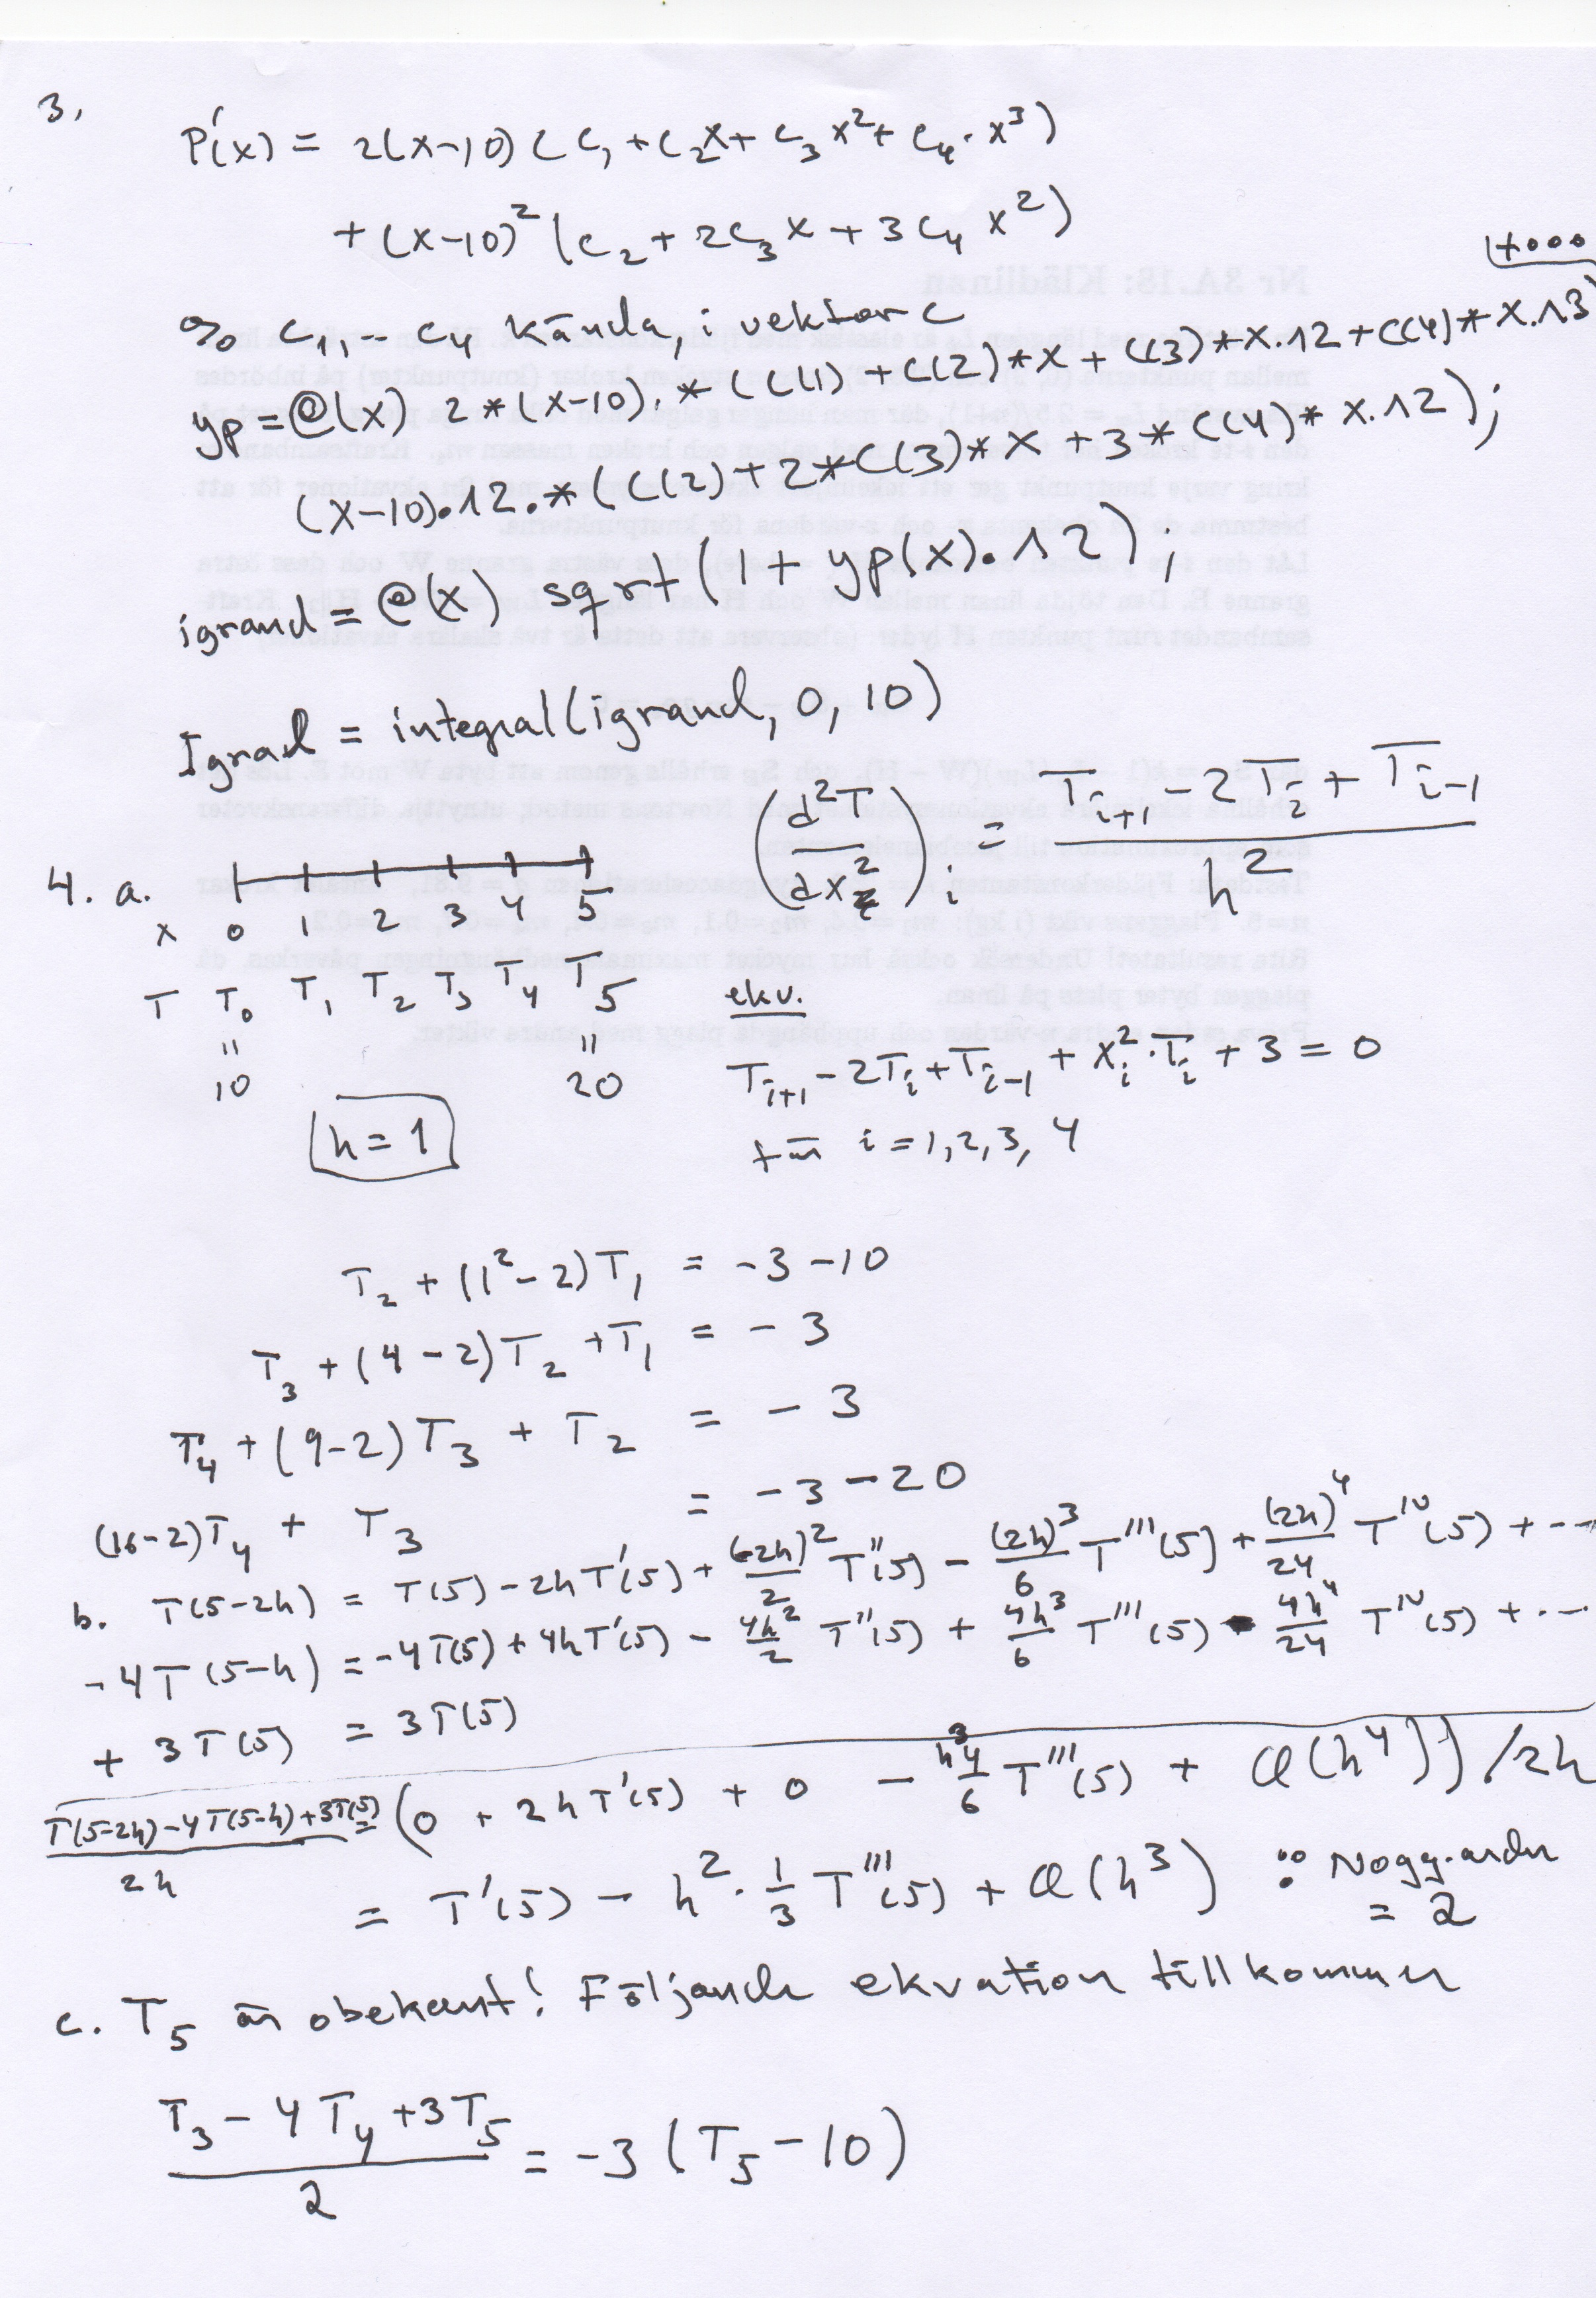 3,
P'(x) = 2(x-10)(c₁ + c₂x + c₃x² + c₄·x³)
+ (x-10)²(c₂ + 2c₃x + 3c₄x²)
% c₁, -- c₄ kända, i vektor c
+...
yp = @(x) 2*(x-10).*(c(1)+c(2)*x+c(3)*x.^2+c(4)*x.^3)
(x-10).^2.*(c(2)+2*c(3)*x+3*c(4)*x.^2);
igrand = @(x) sqrt(1+yp(x).^2);
Igral = integral(igrand, 0, 10)
(d²T/dx²)ᵢ = (Tᵢ₊₁ - 2Tᵢ + Tᵢ₋₁)/h²
4. a.
x 0 1 2 3 4 5
T T₀ T₁ T₂ T₃ T₄ T₅
" "
10 20
h = 1
ekv.
Tᵢ₊₁ - 2Tᵢ + Tᵢ₋₁ + xᵢ²·Tᵢ + 3 = 0
för i = 1, 2, 3, 4
T₂ + (1²-2)T₁ = -3-10
T₃ + (4-2)T₂ + T₁ = -3
T₄ + (9-2)T₃ + T₂ = -3
(16-2)T₄ + T₃ = -3-20
b. T(5-2h) = T(5) - 2hT'(5) + (-2h)²/2 T''(5) - (2h)³/6 T'''(5) + (2h)⁴/24 T^IV(5) + ---
-4T(5-h) = -4T(5) + 4hT'(5) - 4h²/2 T''(5) + 4h³/6 T'''(5) - 4h⁴/24 T^IV(5) + ---
+ 3T(5) = 3T(5)
(T(5-2h)-4T(5-h)+3T(5))/2h = (0 + 2hT'(5) + 0 - h³4/6 T'''(5) + O(h⁴))/2h
= T'(5) - h²·1/3 T'''(5) + O(h³) ∴ Nogg.ordn
= 2
c. T₅ är obekant! Följande ekvation tillkommer
(T₃ - 4T₄ + 3T₅)/2 = -3(T₅ - 10)